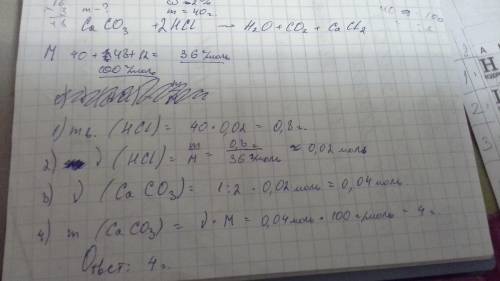 m-? m = 40г.
CaCO3 + 2HCl → H2O + CO2 + CaCl2
M 40 + 48 + 12 = 36 г/моль
100 г/моль
1) m в. (HCl) = 40 · 0,02 = 0,8 г.
2) ν (HCl) = m/M = 0,8 г/36 г/моль ≈ 0,02 моль
3) ν (CaCO3) = 1:2 · 0,02 моль = 0,04 моль.
4) m (CaCO3) = ν · M = 0,04 моль · 100 г/моль = 4 г.
Ответ: 4 г.